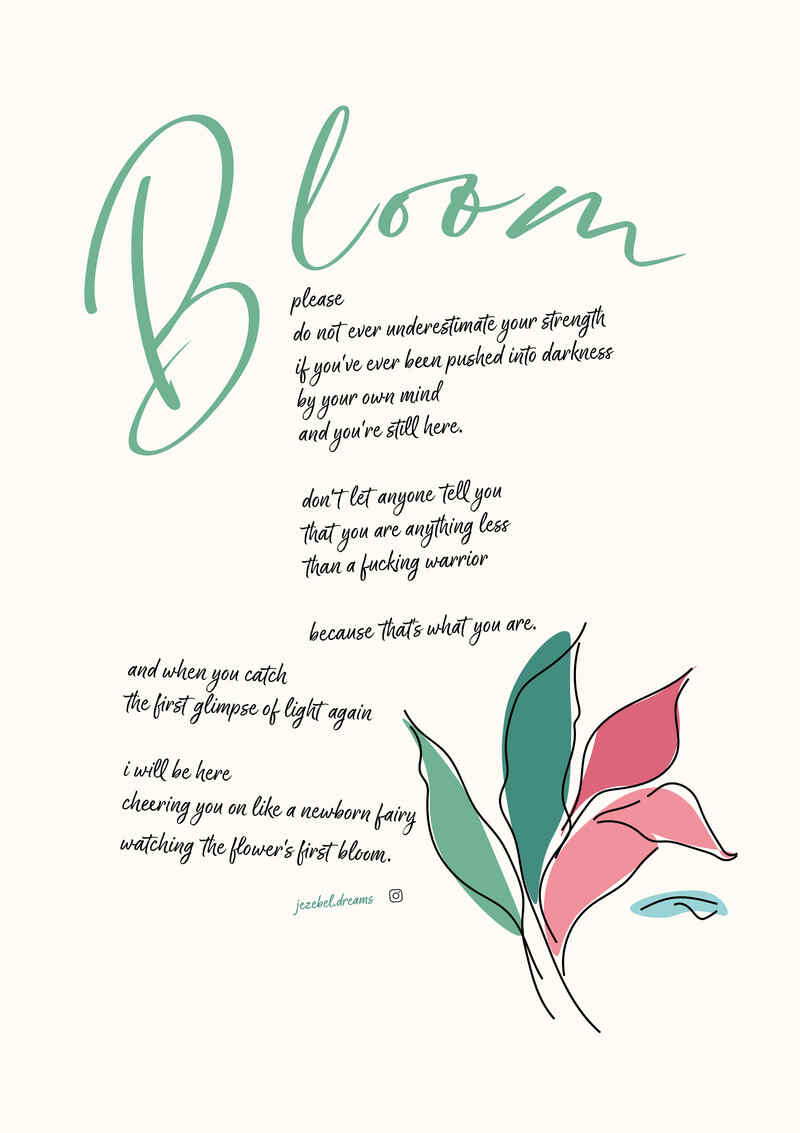 Bloom
please
do not ever underestimate your strength
if you've ever been pushed into darkness
by your own mind
and you're still here.
don't let anyone tell you
that you are anything less
than a fucking warrior
because that's what you are.
and when you catch
the first glimpse of light again
i will be here
cheering you on like a newborn fairy
watching the flower's first bloom.
jezebel.dreams